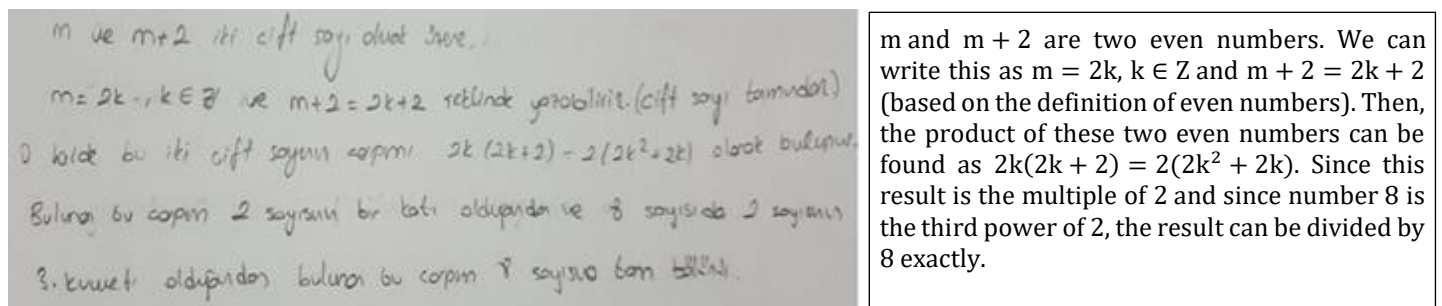 m ve m+2 iki çift sayı olmak üzere.
m = 2k, k ∈ Z ve m+2 = 2k+2 şeklinde yazabiliriz. (çift sayı tanımından)
O halde bu iki çift sayının çarpımı 2k (2k+2) = 2(2k²+2k) olarak bulunur.
Bulunan bu çarpım 2 sayısının bir katı olduğundan ve 8 sayısıda 2 sayısının
3. kuvveti olduğundan bulunan bu çarpım 8 sayısına tam bölünür.
m and m + 2 are two even numbers. We can
write this as m = 2k, k ∈ Z and m + 2 = 2k + 2
(based on the definition of even numbers). Then,
the product of these two even numbers can be
found as 2k(2k + 2) = 2(2k² + 2k). Since this
result is the multiple of 2 and since number 8 is
the third power of 2, the result can be divided by
8 exactly.